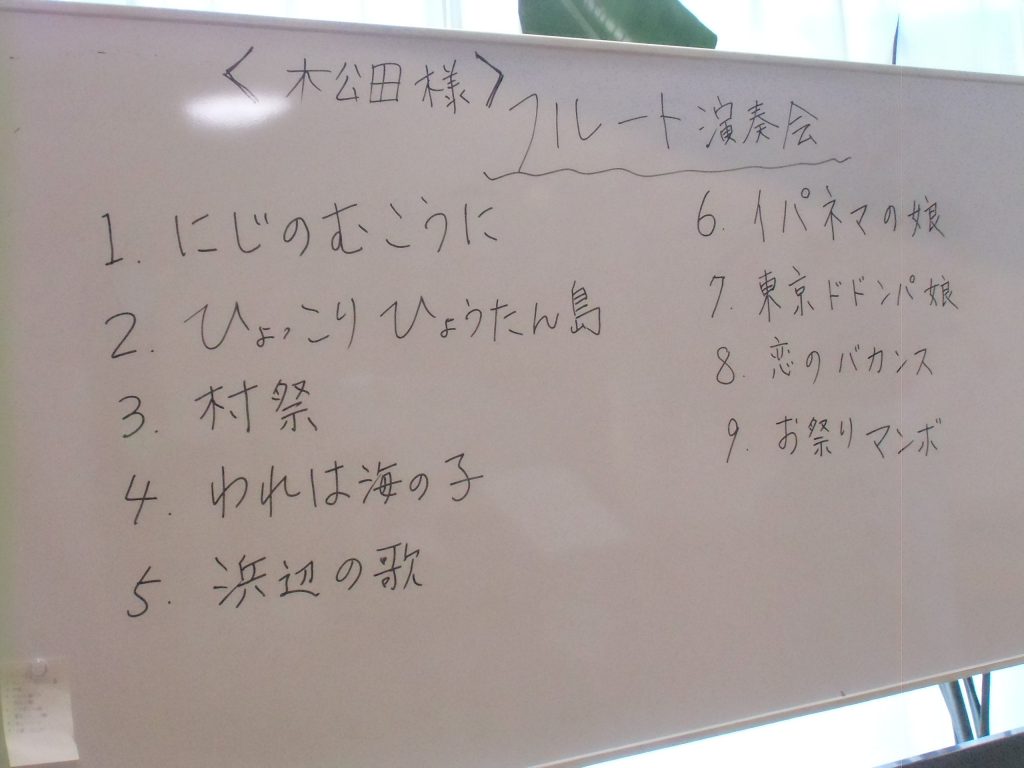 <松田様>
フルート演奏会
1. にじのむこうに
2. ひょっこりひょうたん島
3. 村祭
4. われは海の子
5. 浜辺の歌
6. イパネマの娘
7. 東京ドドンパ娘
8. 恋のバカンス
9. お祭りマンボ